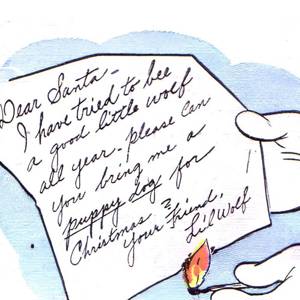 Dear Santa-
I have tried to bee
a good little wolf
all year. please can
you bring me a
puppy dog for
Christmas?
Your Friend,
Li'l Wolf